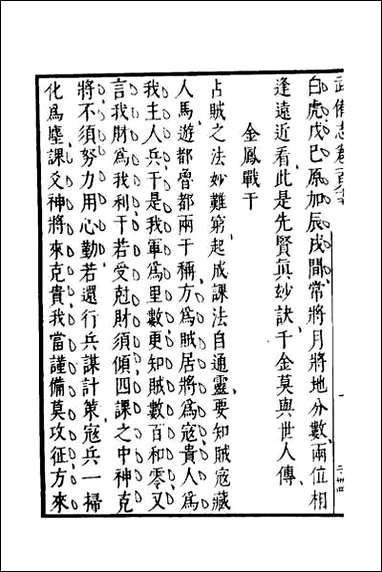 武備志卷一百八十
白虎戊巳原加辰戌間常將月將地分數兩位相
逢遠近看此是先賢眞妙訣千金莫與世人傳
金鳳戰干
占賊之法妙難窮起成課法自通靈要知賊寇藏
人馬遊都魯都兩干稱方爲賊居將爲寇貴人爲
我主人兵干是我軍爲里數更知賊數百和零又
言我財爲我利干若受尅財須傾四課之中神克
將不須努力用心勤若還行兵謀計策寇兵一掃
化爲塵課爻神將來克貴我當謹備莫攻征方來